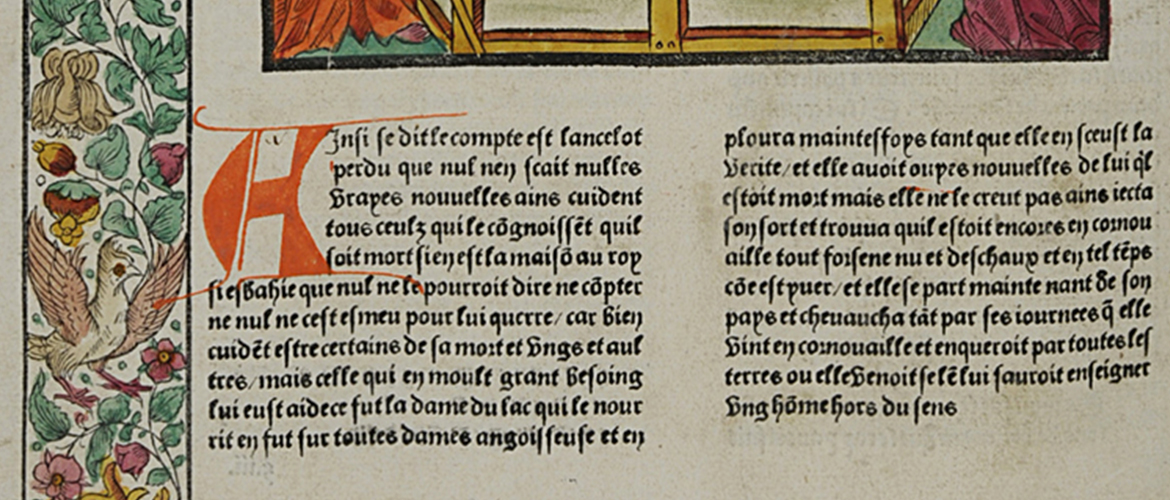 AInsi se dit le compte est lancelot
perdu que nul neη scait nulles
vrayes nouuelles ains cuident
tous ceulz qui le cōgnoissēt quil
soit mort sieη est la maisō au roy
si esbahie que nul ne le pourroit dire ne cōpter
ne nul ne cest esmeu pour lui querre/ car bien
cuidēt estre certains de sa mort et vngs et aul
tres/ mais celle qui en moult grant besoing
lui eust aide ce fut la dame du lac qui le nour
rit eη fut sur toutes dames angoisseuse et eη
ploura maintesfoys tant que elle eη sceust la
verite/ et elle auoit ouyes nouuelles de lui ql̄
estoit mort mais elle ne le creut pas ains iecta
soη sort et trouua quil estoit encores eη cornou
aille tout forsene nu et deschaux et eη tel tēps
cōe est yuer/ et elle se part mainte nant de soη
pays et cheuaucha tāt par ses iournees q̄ elle
vint eη cornouaille et enqueroit par toutes les
terres ou elle venoit se lē lui sauroit enseigner
vng hōme hors du sens